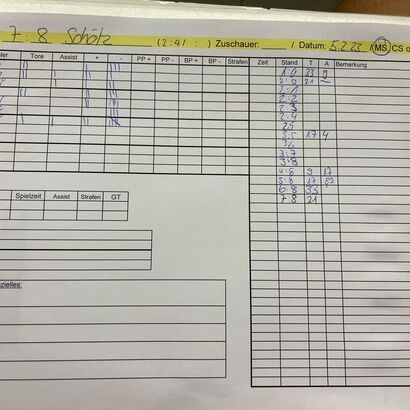 7 : 8 Schötz (2:4/ : ) Zuschauer: / Datum: 5.2.23 MS CS
Tore Assist + - PP + PP - BP + BP - Strafen
Zeit Stand T A Bemerkung
1:0 33 9
2:0 21
2:1
2:2
2:3
2:4
2:5
3:5 17 4
3:6
3:7
3:8
4:8 9 17
5:8 17
6:8 33
7:8 21
Spielzeit Assist Strafen GT